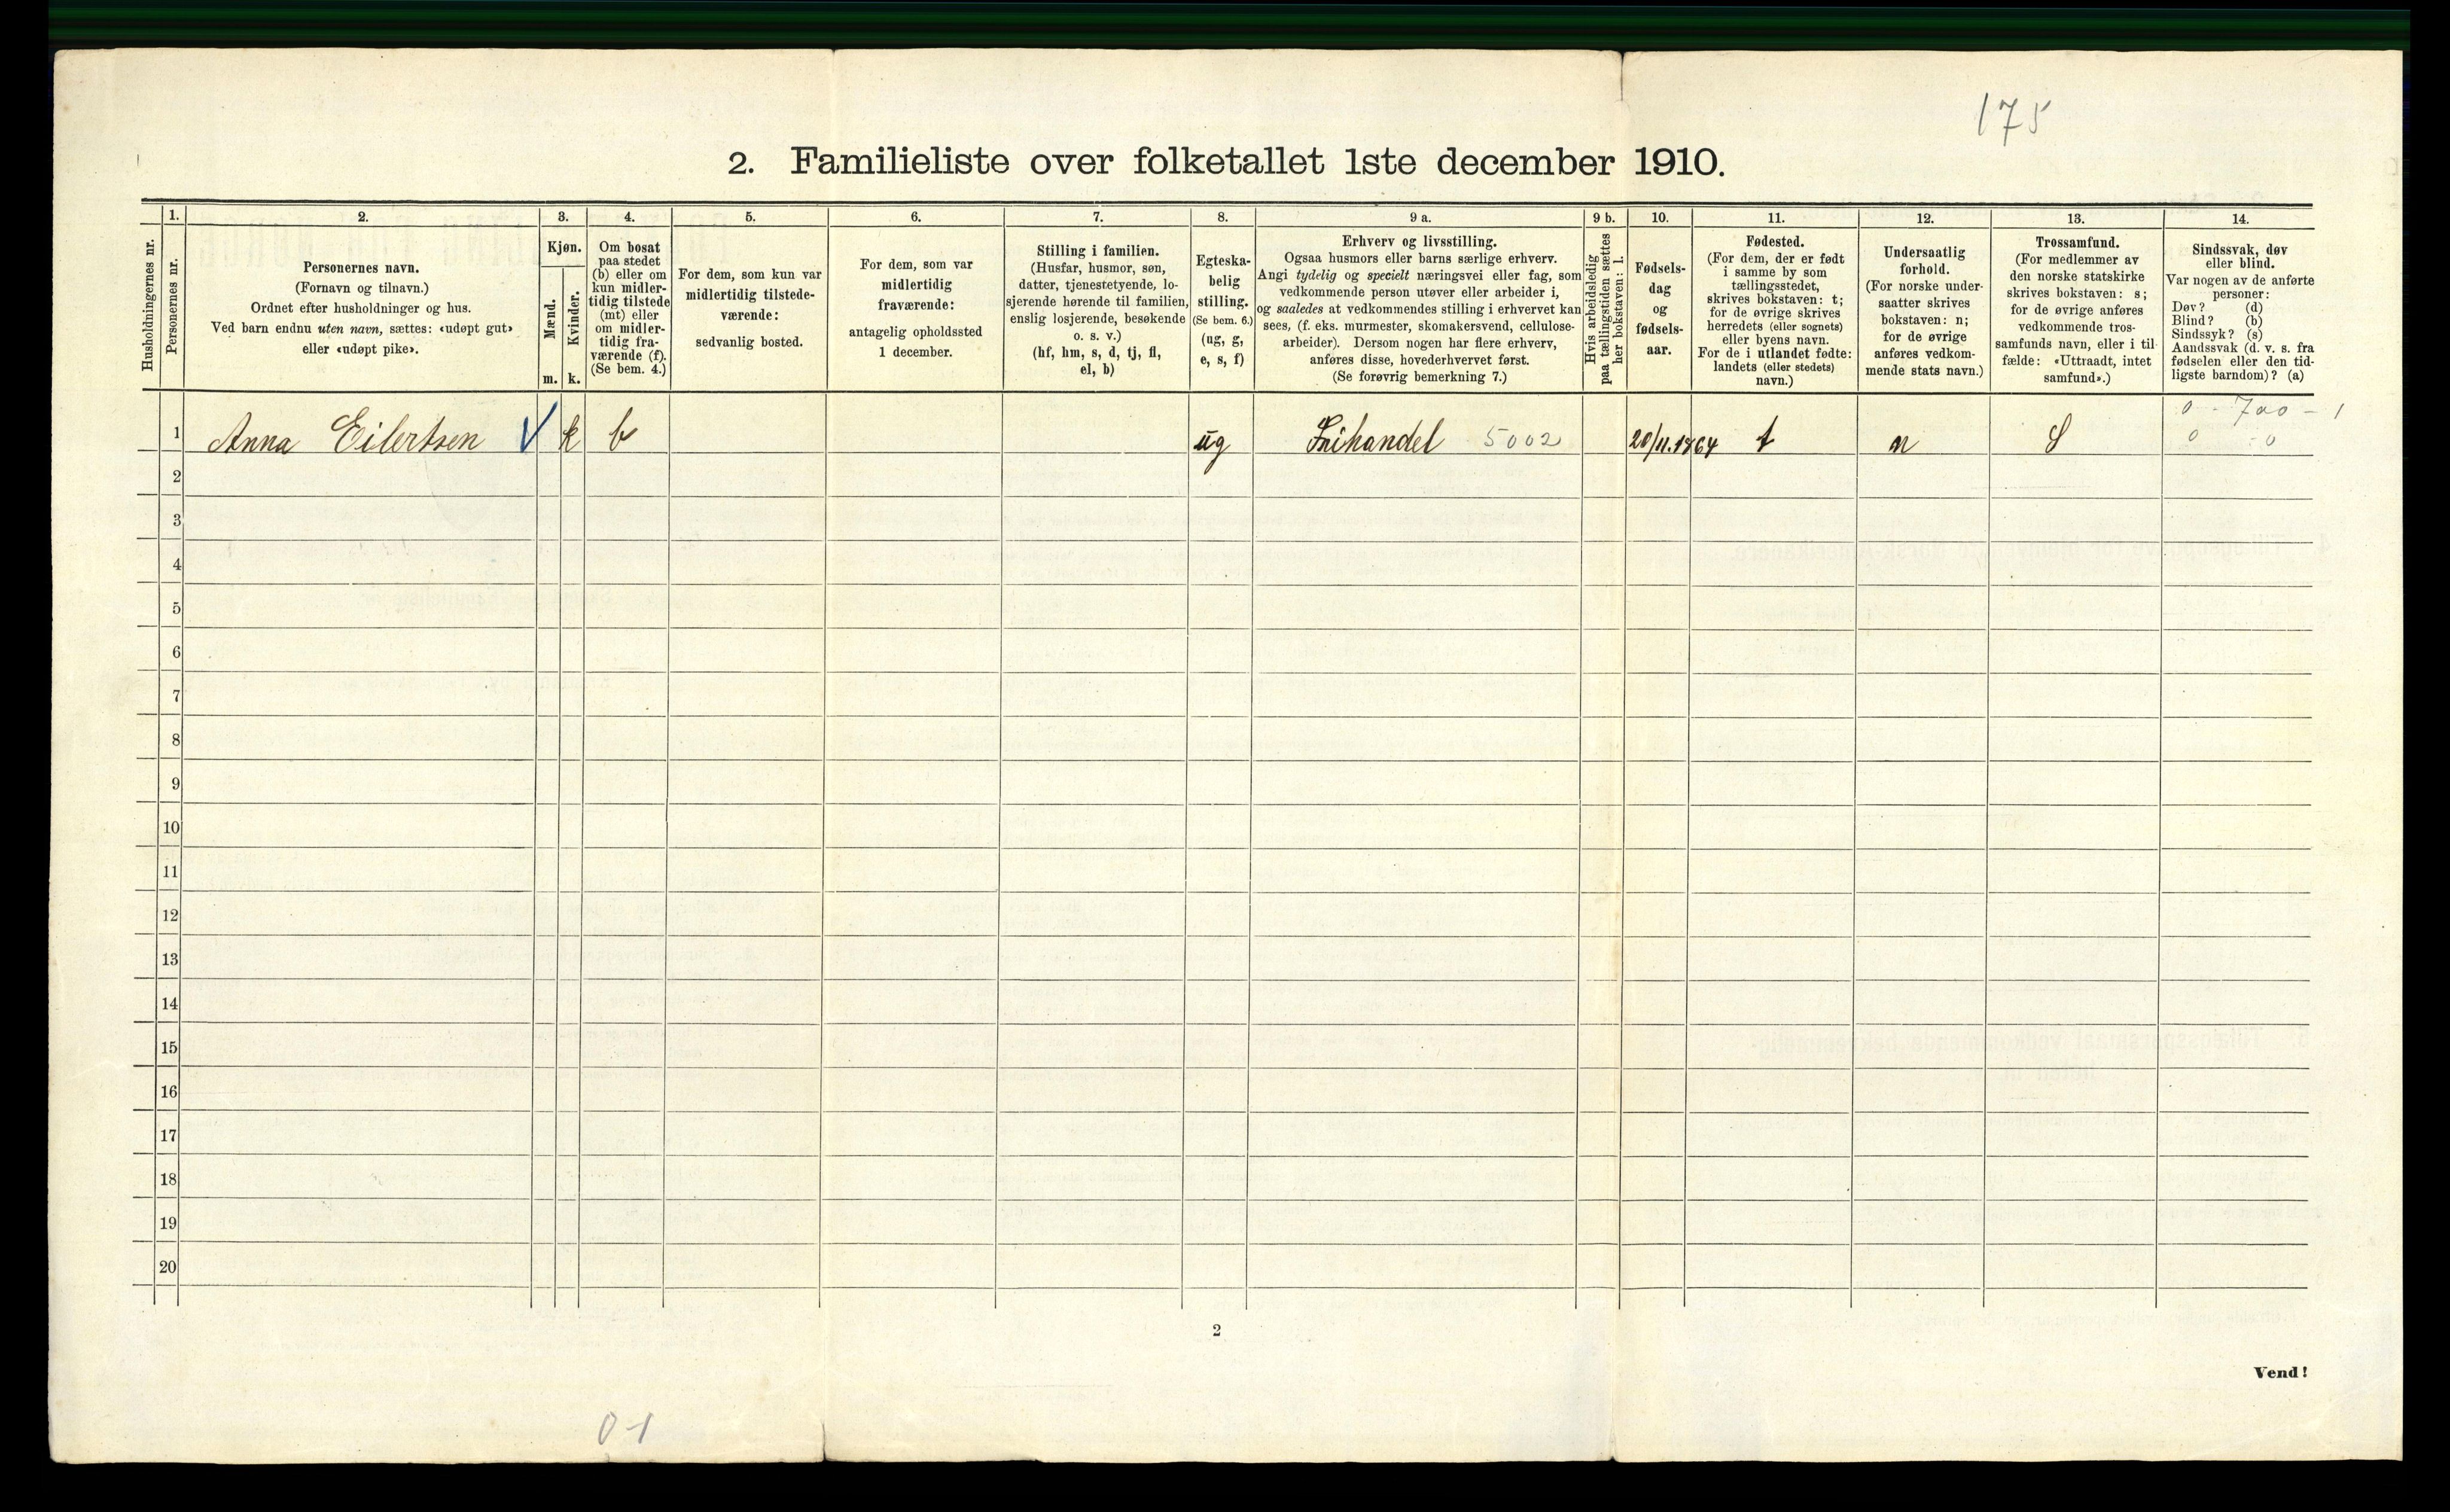 175
2. Familieliste over folketallet 1ste december 1910.
Husholdningernes nr.
1.
Personernes nr.
2.
Personernes navn.
(Fornavn og tilnavn.)
Ordnet efter husholdninger og hus.
Ved barn endnu uten navn, sættes: «udøpt gut»
eller «udøpt pike».
3.
Kjøn.
Mænd.
Kvinder.
m. k.
4.
Om bosat
paa stedet
(b) eller om
kun midler-
tidig tilstede
(mt) eller
om midler-
tidig fra-
værende (f).
(Se bem. 4.)
5.
For dem, som kun var
midlertidig tilstede-
værende:
sedvanlig bosted.
6.
For dem, som var
midlertidig
fraværende:
antagelig opholdssted
1 december.
7.
Stilling i familien.
(Husfar, husmor, søn,
datter, tjenestetyende, lo-
sjerende hørende til familien,
enslig losjerende, besøkende
o. s. v.)
(hf, hm, s, d, tj, fl,
el, b)
8.
Egteska-
belig
stilling.
(Se bem. 6.)
(ug, g,
e, s, f)
9 a.
Erhverv og livsstilling.
Ogsaa husmors eller barns særlige erhverv.
Angi tydelig og specielt næringsvei eller fag, som
vedkommende person utøver eller arbeider i,
og saaledes at vedkommendes stilling i erhvervet kan
sees, (f. eks. murmester, skomakersvend, cellulose-
arbeider). Dersom nogen har flere erhverv,
anføres disse, hovederhvervet først.
(Se forøvrig bemerkning 7.)
9 b.
Hvis arbeidsledig
paa tællingstiden sættes
her bokstaven: l.
10.
Fødsels-
dag
og
fødsels-
aar.
11.
Fødested.
(For dem, der er født
i samme by som
tællingsstedet,
skrives bokstaven: t;
for de øvrige skrives
herredets (eller sognets)
eller byens navn.
For de i utlandet fødte:
landets (eller stedets)
navn.)
12.
Undersaatlig
forhold.
(For norske under-
saatter skrives
bokstaven: n;
for de øvrige
anføres vedkom-
mende stats navn.)
13.
Trossamfund.
(For medlemmer av
den norske statskirke
skrives bokstaven: s;
for de øvrige anføres
vedkommende tros-
samfunds navn, eller i til-
fælde: «Uttraadt, intet
samfund».)
14.
Sindssvak, døv
eller blind.
Var nogen av de anførte
personer:
Døv? (d)
Blind? (b)
Sindssyk? (s)
Aandssvak (d. v. s. fra
fødselen eller den tid-
ligste barndom)? (a)
0 - 700 - 1
1 Anna Eilertsen V k b ug Frihandel 5002 20/11.1864 t n S 0 - 0
2
3
4
5
6
7
8
9
10
11
12
13
14
15
16
17
18
19
20
2
Vend!
0-1